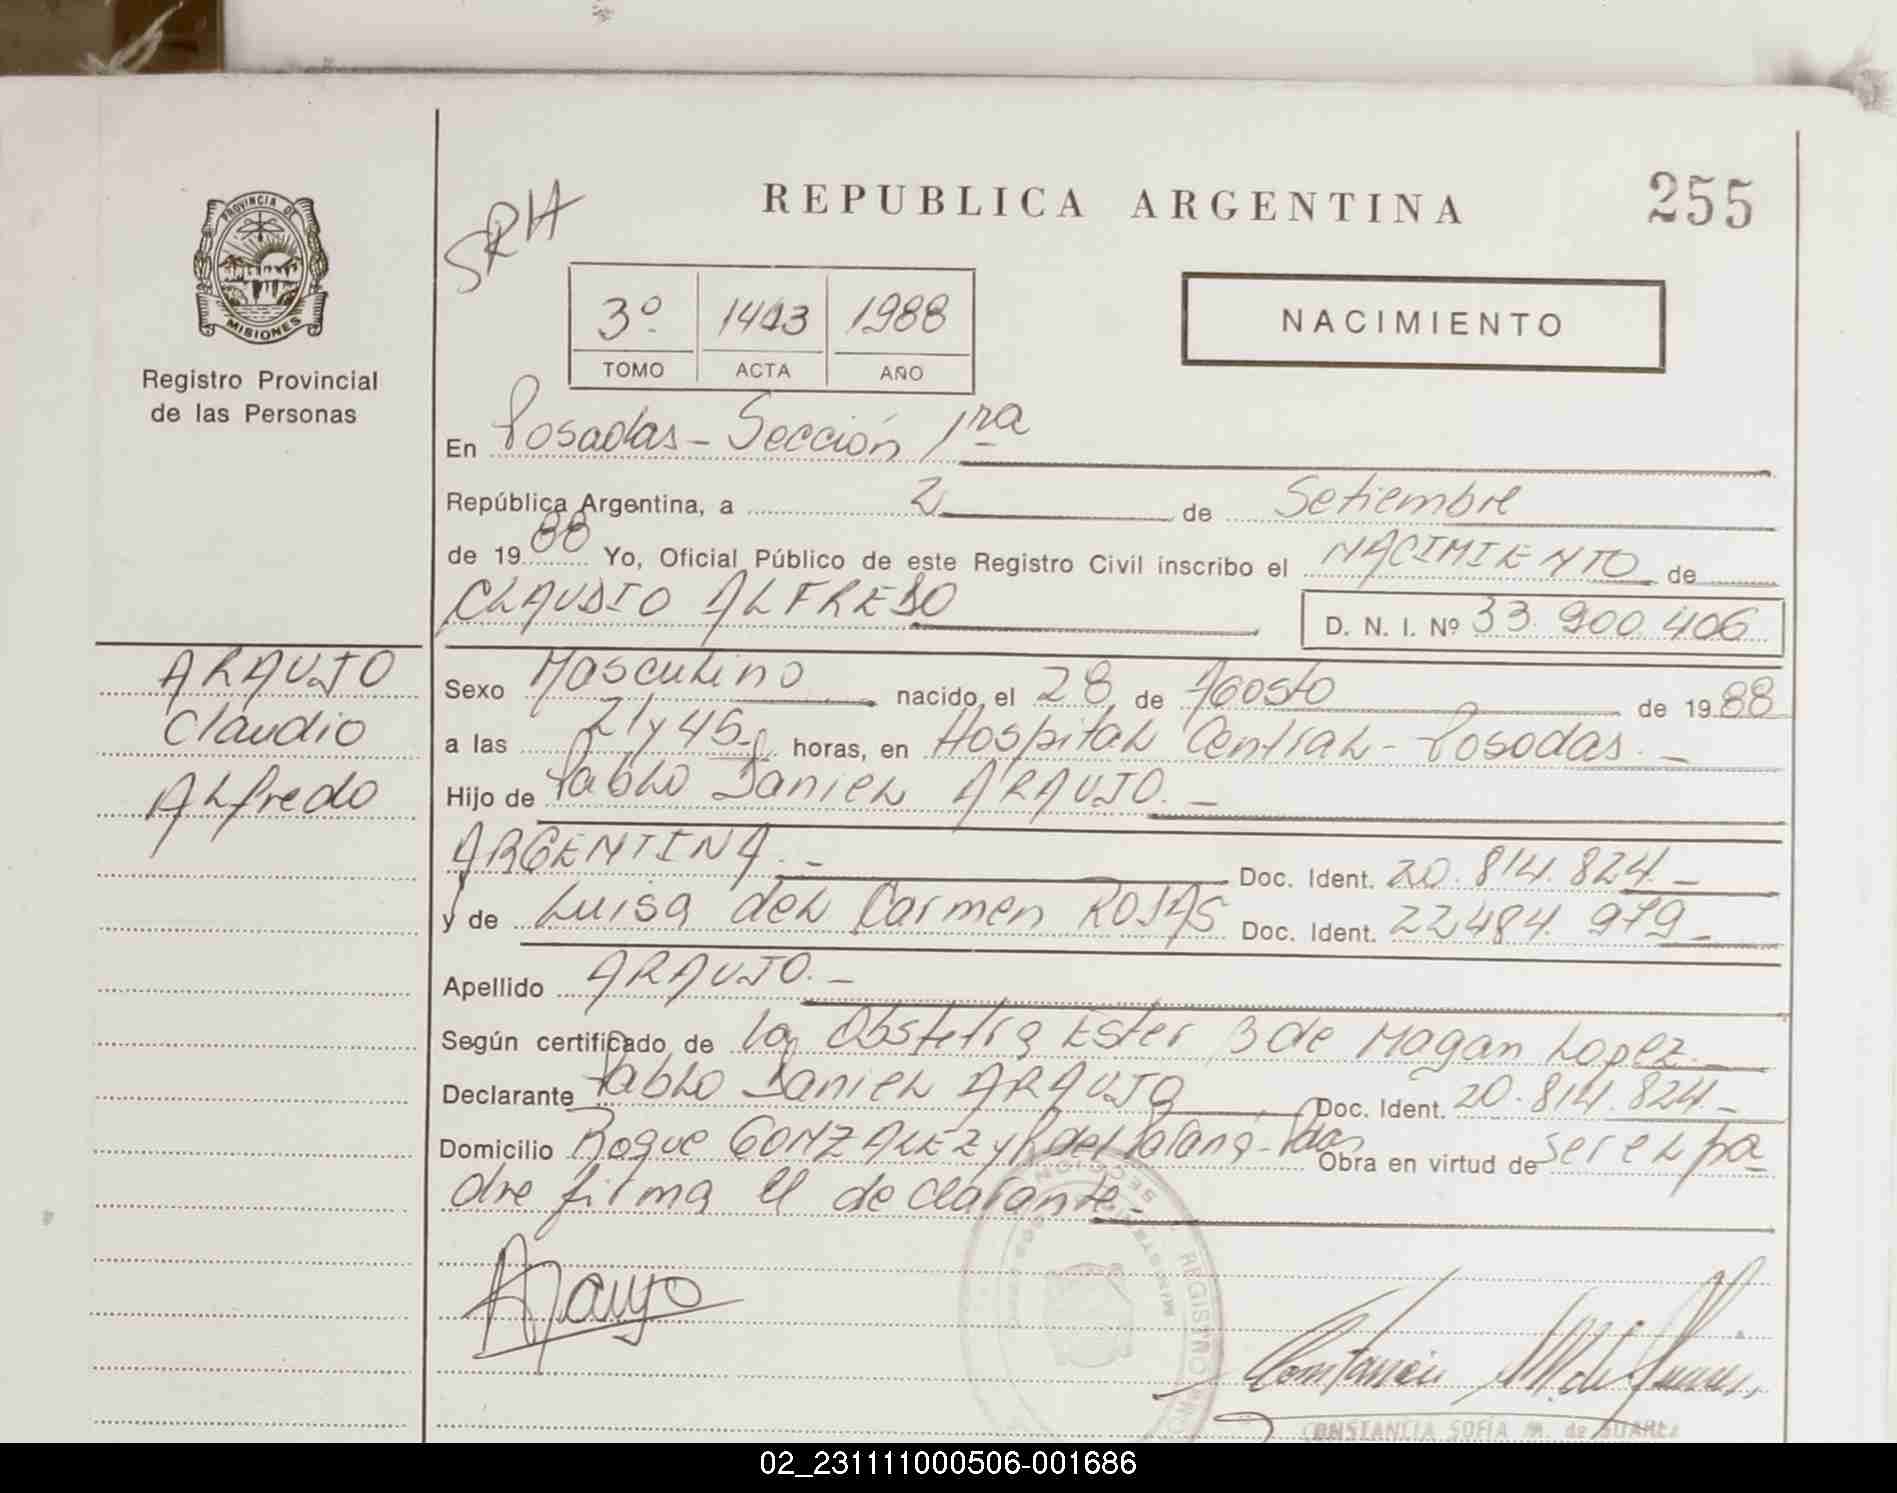 PROVINCIA DE
MISIONES
Registro Provincial
de las Personas
ARAUJO
Claudio
Alfredo
SRH
REPUBLICA ARGENTINA
255
3º 1443 1988
TOMO ACTA AÑO
NACIMIENTO
En Posadas - Sección 1ra
República Argentina, a 2 de Setiembre
de 1988 Yo, Oficial Público de este Registro Civil inscribo el NACIMIENTO de
CLAUDIO ALFREDO D. N. I. Nº 33.900.406
Sexo Masculino nacido el 28 de Agosto de 1988
a las 21 y 45 horas, en Hospital Central - Posadas. -
Hijo de Pablo Daniel ARAUJO. -
ARGENTINA. - Doc. Ident. 20.814.824. -
y de Luisa del Carmen ROJAS Doc. Ident. 22484.979 -
Apellido ARAUJO. -
Según certificado de la Obstetra Ester B de Magan Lopez. -
Declarante Pablo Daniel ARAUJO Doc. Ident. 20.814.824. -
Domicilio Roque GONZALEZ y del Paraná - Pdas Obra en virtud de ser el pa
dre firma el declarante. -
Araujo
SECCION
REGISTRO
CONSTANCIA SOFIA M. de SUAREZ
02_231111000506-001686